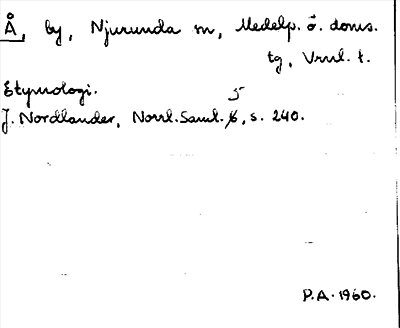 Å, by, Njurunda sn, Medelp. ö. doms.
tg, Vnrl. l.
Etymologi.
J. Nordlander, Norrl. Saml. 5, s. 240.
P.A. 1960.